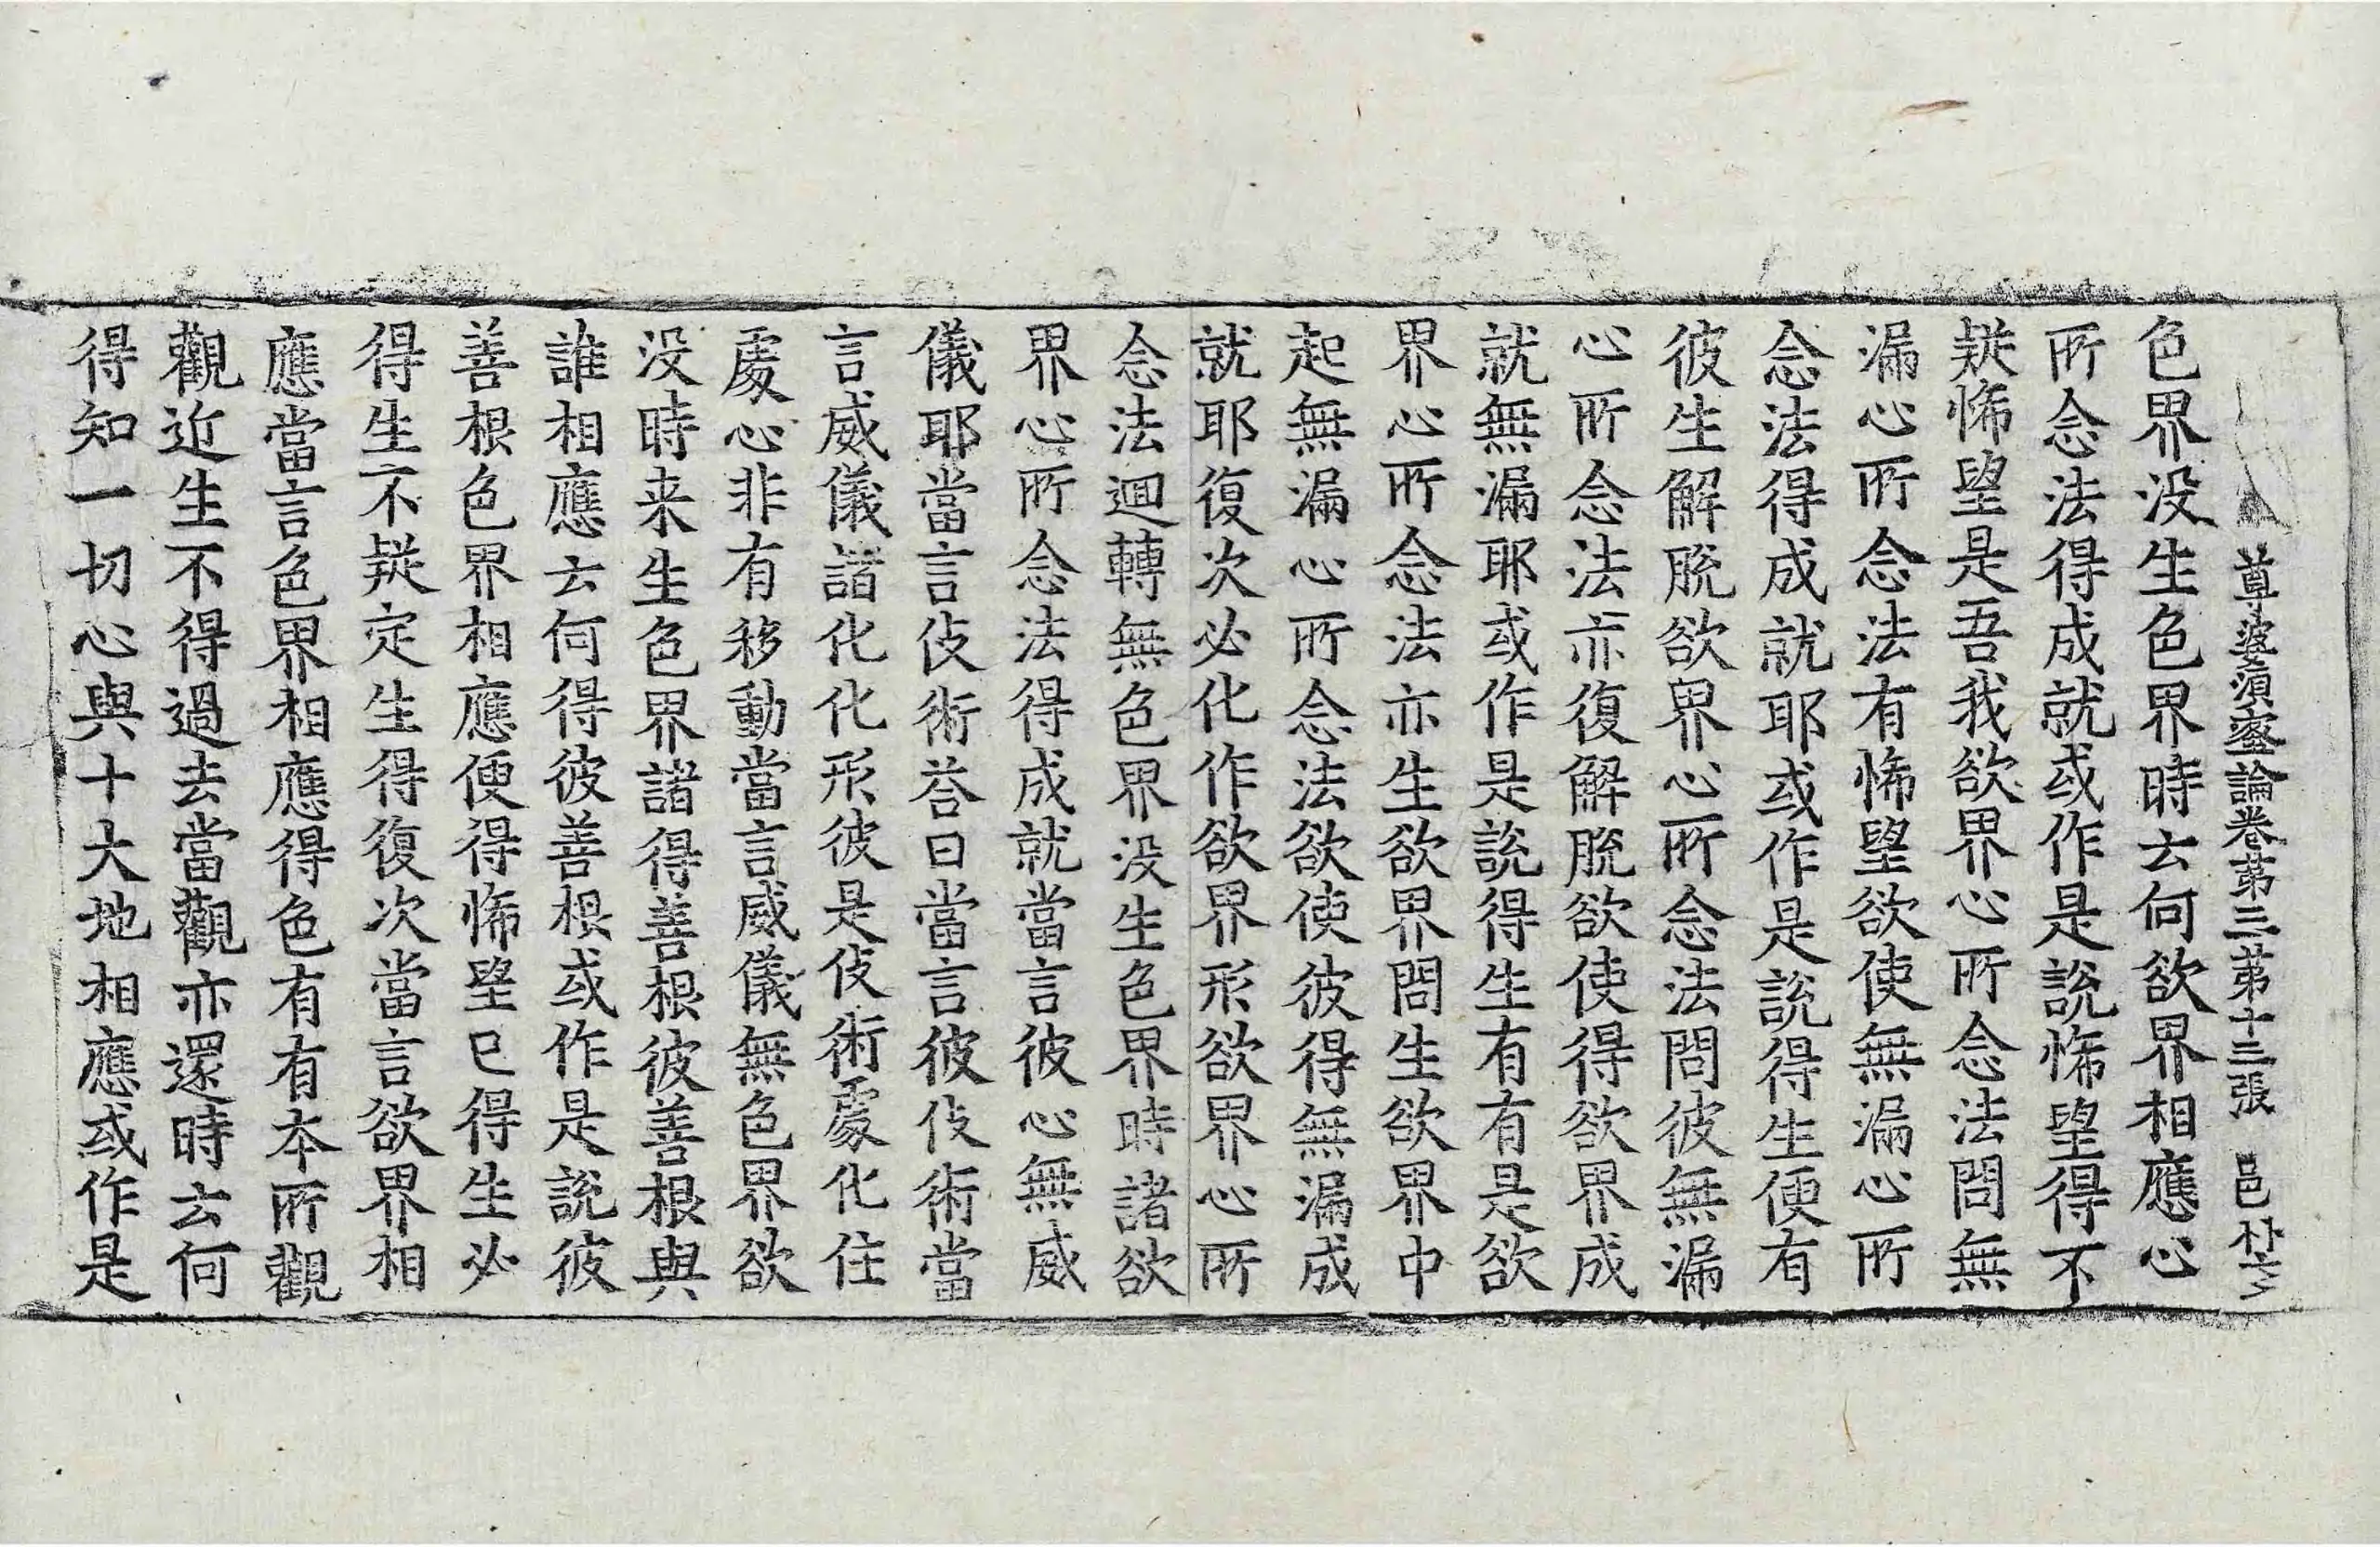 尊婆須蜜論卷苐三苐十三張 邑
色界没生色界時云何欲界相應心
所念法得成就或作是説悕望得不
疑悕望是吾我欲界心所念法問無
漏心所念法有悕望欲使無漏心所
念法得成就耶或作是説得生便有
彼生解脱欲界心所念法問彼無漏
心所念法亦復解脱欲使得欲界成
就無漏耶或作是説得生有有是欲
界心所念法亦生欲界問生欲界中
起無漏心所念法欲使彼得無漏成
就耶復次必化作欲界形欲界心所
念法迴轉無色界没生色界時諸欲
界心所念法得成就當言彼心無威
儀耶當言伎術荅曰當言彼伎術當
言威儀諸化化形彼是伎術處化住
處心非有移動當言威儀無色界欲
没時来生色界諸得善根彼善根與
誰相應云何得彼善根或作是説彼
善根色界相應便得悕望已得生必
得生不疑定生得復次當言欲界相
應當言色界相應得色有有本所觀
觀近生不得過去當觀亦還時云何
得知一切心與十大地相應或作是